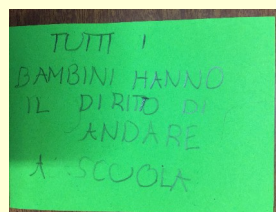 TUTTI I
BAMBINI HANNO
IL DIRITTO DI
ANDARE
A SCUOLA